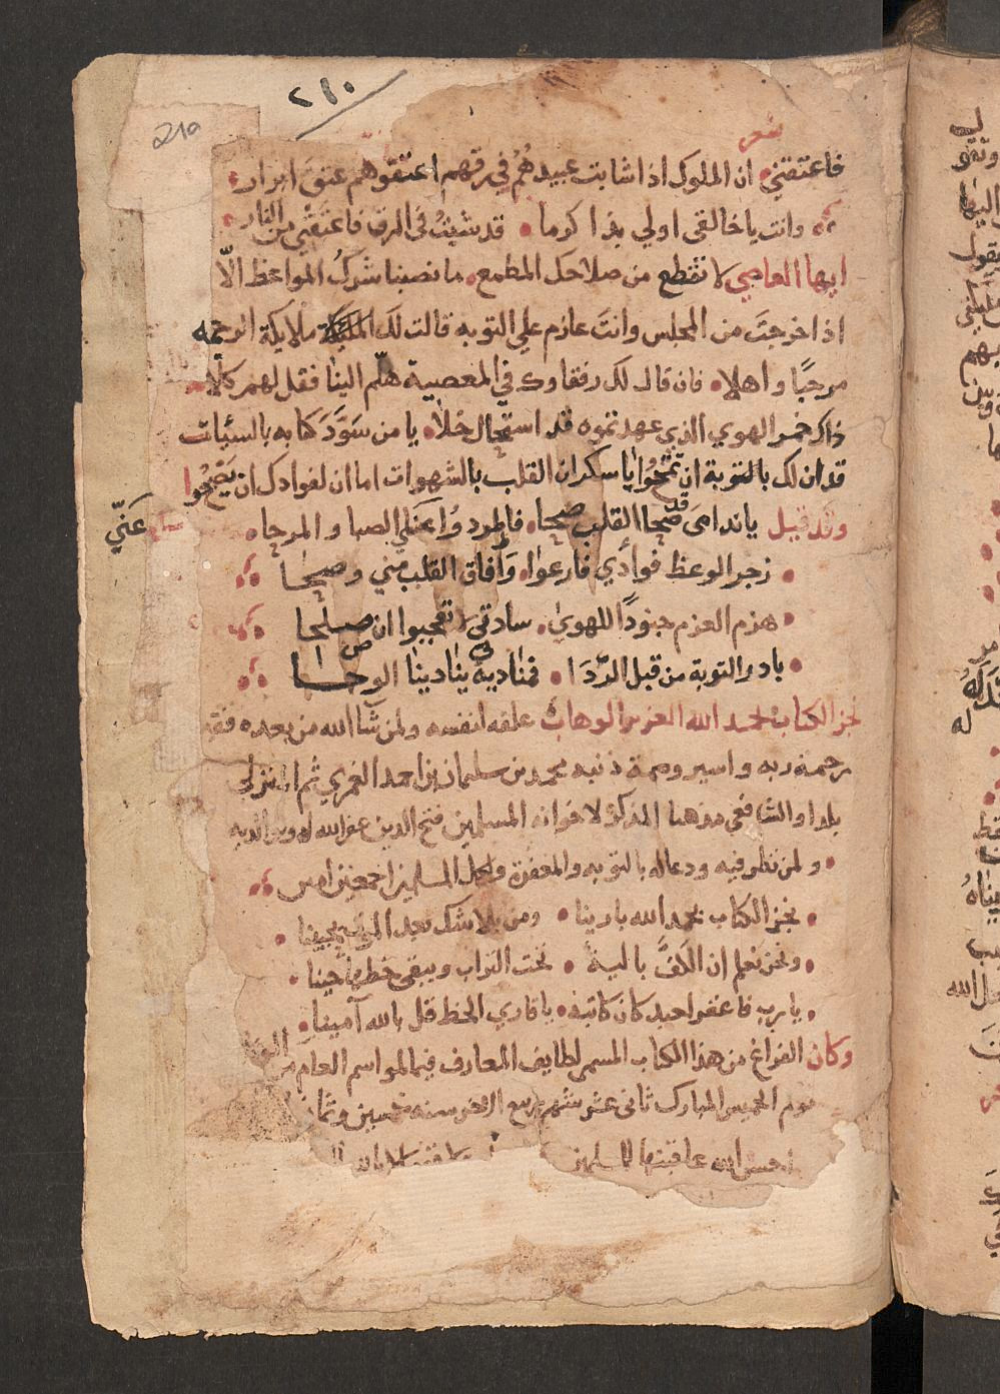 ٢١٠
210
شعر
فاعتقتني ان الملوك اذا شابت عبيدهُمُ في رقهم اعتقوهم عتق ابرار
وانت يا خالقي اولي بذا كرما قد شبتُ في الرق فاعتقني من النار
ايها العاصي لا تقطع من صلاحك المطمع ما نصبنا شركُ المواعظ الّا
اذا خرجتَ من المجلس وانتَ عازم علي التوبه قالت لك ملايكة الرحمه
مرحبًا واهلا فان قال لك رفقاوك في المعصية هلّم الينا فقل لهم كلا
ذاك خمر الهوي الذي عهدتموه قد استحال خلا يا من سَوَّدَ كتابه بالسيئات
قد ان لك بالتوبة ان تمحُوا يا سكران القلب بالشهوات اما ان لفوادك ان يصحُوا
وقد قيل يا نداميَ صحا القلب صحا فاطردوا عني الصبا والمرحا
عَنّي
زجر الوعظ فوادي فارعوا وافاق القلب مني وصحا
هزم العزم جنودًا للهوي سادتي لا تعجبوا ان صلحا
بادر التوبة من قبل الرّدَا فمناديه ينادينا الوحا
نجز الكتاب بحمد الله العزيز الوهاب علقه لنفسه ولمن شا الله من بعده فقير
رحمة ربه واسير وصمة ذنبه محمد بن سليمان بن احمد الغمري ثم المنزلي
بلدا والشافعي مذهبا المذكر لاخوانه المسلمين فتح الدين عفر الله له ولوالديه
ولمن نظر فيه ودعا له بالتوبه والمغفرة ولكل المسلمين اجمعين امين
نجز الكتاب بحمد الله بارينا ومن بلا شك بعد الموت يحيينا
ونحن نعلم ان الكفَّ بالية تحت التراب ويبقى خطها حينا
يا رب فاغفر لعبد كان كاتبه يا قاري الخط قل بالله آمينا
وكان الفراغ من هذا الكتاب المسمى لطايف المعارف فيما لمواسم العام من
يوم الخميس المبارك ثاني عشر شهر ربيع الاخر سنه خمسين وثمان
احسن الله عاقبتها للمسلمين